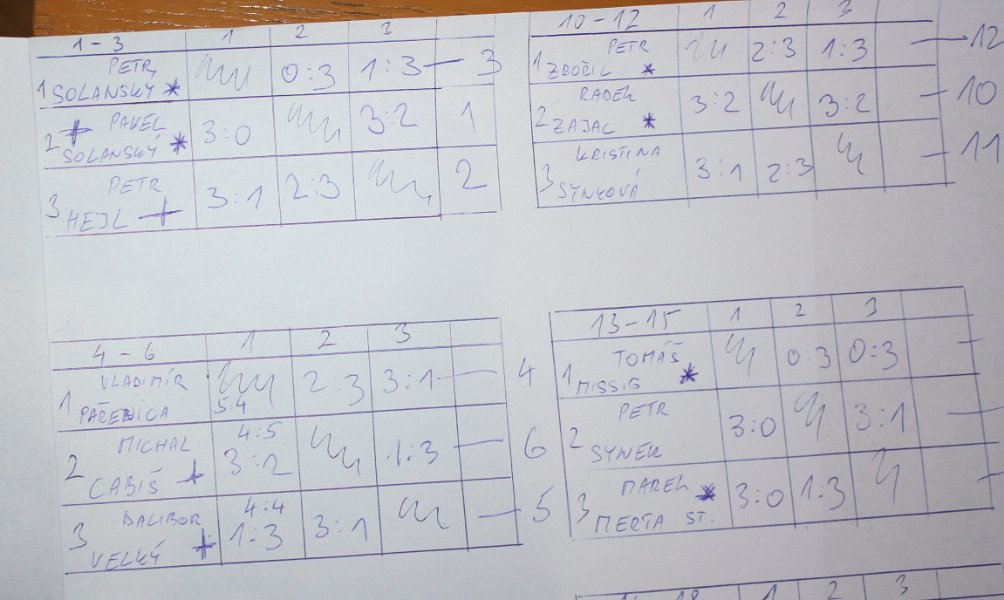 1-3 1 2 3
PETR
1 SOLANSKÝ * 0:3 1:3 — 3
+ PAVEL
2 SOLANSKÝ * 3:0 3:2 1
PETR
3 HEJL + 3:1 2:3 2
10-12 1 2 3
PETR
1 ZBOŘIL * 2:3 1:3 — 12
RADEK
2 ZAJAC * 3:2 3:2 — 10
KRISTINA
3 SYNKOVÁ 3:1 2:3 — 11
4-6 1 2 3
VLADIMÍR
1 PAČENICA 5:4 2:3 3:1 — 4
MICHAL 4:5
2 CABIŠ + 3:2 1:3 — 6
DALIBOR 4:4
3 VELKÝ + 1:3 3:1 — 5
13-15 1 2 3
TOMÁŠ
1 MISSIG * 0:3 0:3 —
PETR
2 SYNEK 3:0 3:1 —
MAREK *
3 MERTA ST. 3:0 1:3 —
1 2 3